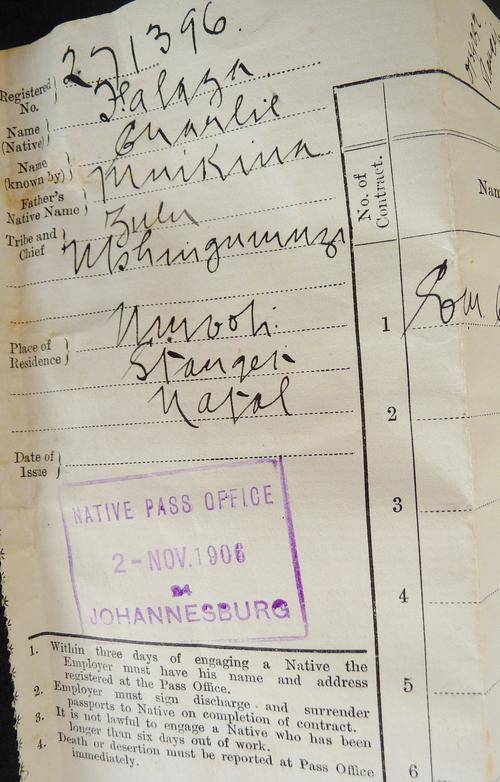 Registered No. 271396.
Name (Native) Falaza
Name (known by) Charlie
Father's Native Name
Tribe and Chief Zulu
Place of Residence Umvoti
Stanger
Natal
Date of Issue
NATIVE PASS OFFICE
2-NOV.1906
JOHANNESBURG
1. Within three days of engaging a Native the
Employer must have his name and address
registered at the Pass Office.
2. Employer must sign discharge and surrender
passports to Native on completion of contract.
3. It is not lawful to engage a Native who has been
longer than six days out of work.
4. Death or desertion must be reported at Pass Office
immediately.
No. of
Contract.
1
2
3
4
5
6